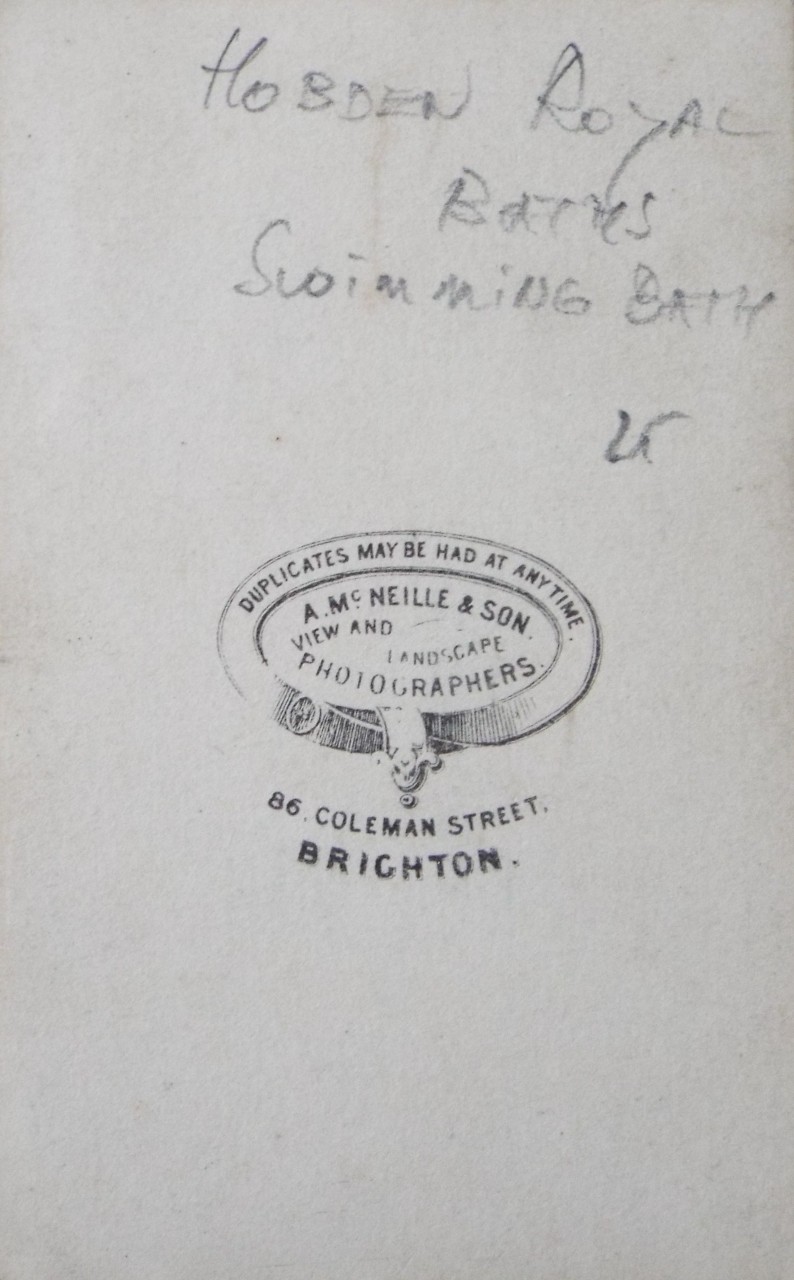 HOBDEN ROYAL
BATHS
SWIMMING BATH
DUPLICATES MAY BE HAD AT ANY TIME.
A. Mc NEILLE & SON.
VIEW AND
LANDSCAPE
PHOTOGRAPHERS.
86. COLEMAN STREET.
BRIGHTON.